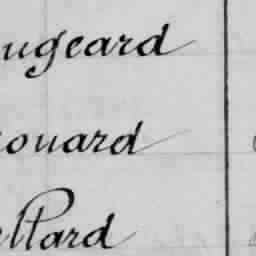 ugeard
ouard
ellard